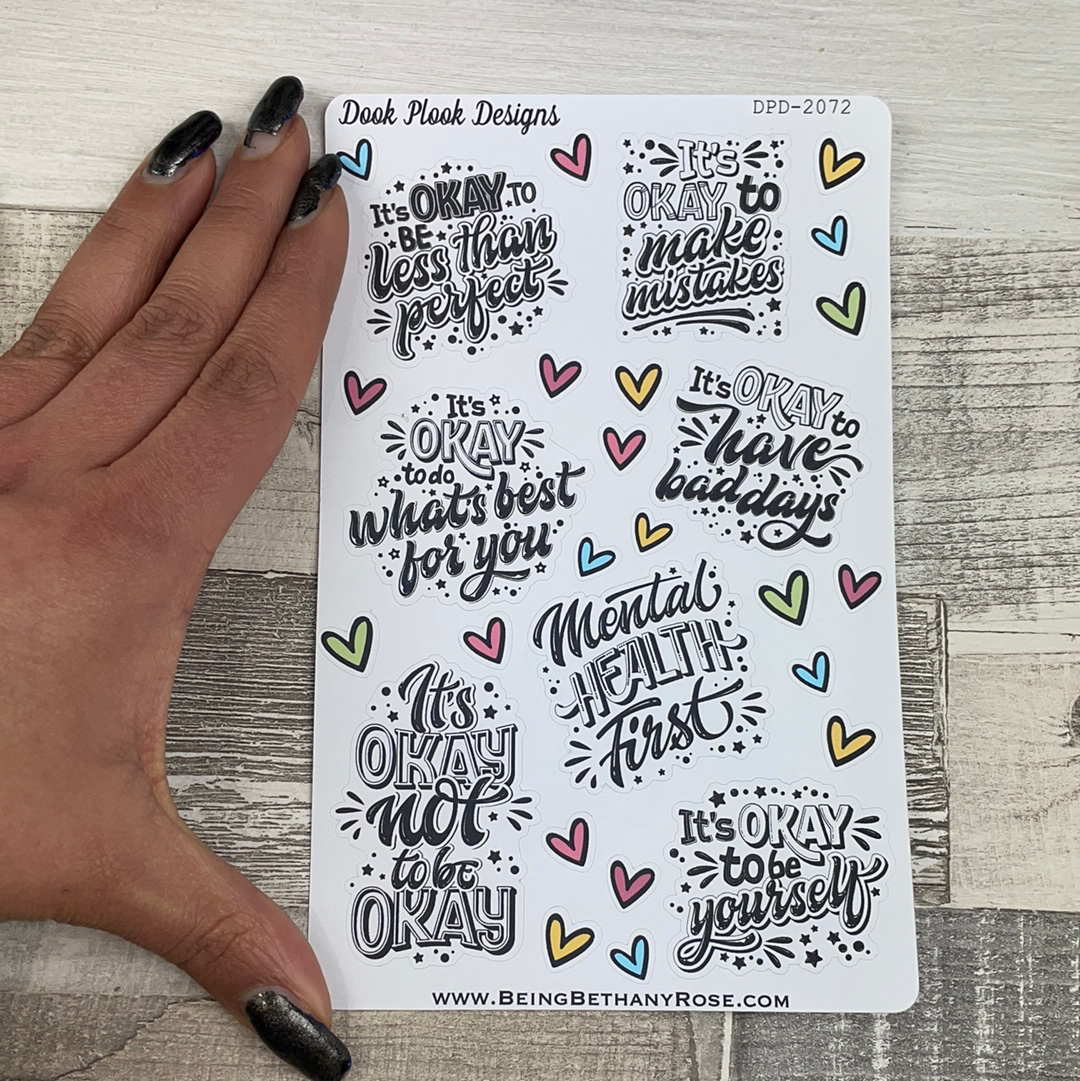 Dook Plook Designs
DPD-2072
It's OKAY TO
BE
less than
perfect
It's
OKAY to
make
mistakes
It's
OKAY
to do
what's best
for you
It's OKAY to
have
bad days
Mental
HEALTH
First
It's
OKAY
not
to be
OKAY
It's OKAY
to be
yourself
www.BeingBethanyRose.com